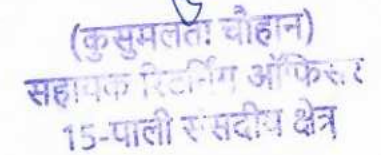 (कुसुमलता चौहान)
सहायक रिटर्निंग ऑफिसर
15-पाली संसदीय क्षेत्र